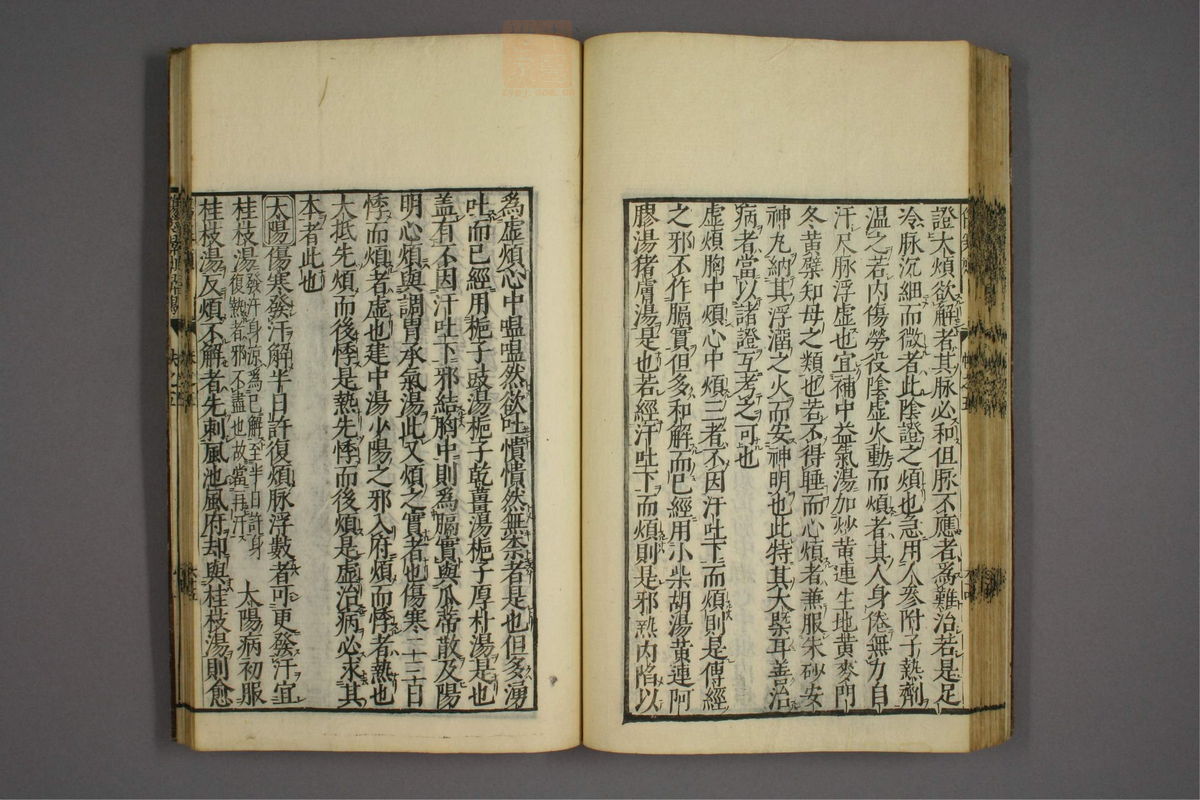 證大煩欲解者其脉必和但脈不應者爲難治若是足
冷脉沉細而微者此陰證之煩也急用人參附子熱劑
温之若内傷勞役陰虚火動而煩者其人身倦無力自
汗尺脉浮虚也宜補中益氣湯加炒黄連生地黄麥門
冬黄檗知母之類也若不得睡而心煩者兼服朱砂安
神丸納其浮溜之火而安神明也此特其大槩耳善治
病者當以諸證互考之可也
虚煩胸中煩心中煩三者不因汗吐下而煩則是傳經
之邪不作膈實但多和解而已經用小柴胡湯黄連阿
膠湯猪膚湯是也若經汗吐下而煩則是邪熱内陷以
爲虚煩心中嗢嗢然欲吐憒憒然無柰者是也但多湧
吐而已經用梔子豉湯梔子乾薑湯梔子厚朴湯是也
盖有不因汗吐下邪結胸中則爲膈實與瓜蒂散及陽
明心煩與調胃承氣湯此又煩之實者也傷寒二十三日
悸而煩者虚也建中湯少陽之邪入府煩而悸者熱也
大抵先煩而後悸是熱先悸而後煩是虚治病必求其
本者此也
太陽傷寒發汗解半日許復煩脉浮數者可更發汗宜
桂枝湯發汗身涼爲已解至半日許身復熱者邪不盡也故當再汗 太陽病初服
桂枝湯反煩不解者先刺風池風府却與桂枝湯則愈